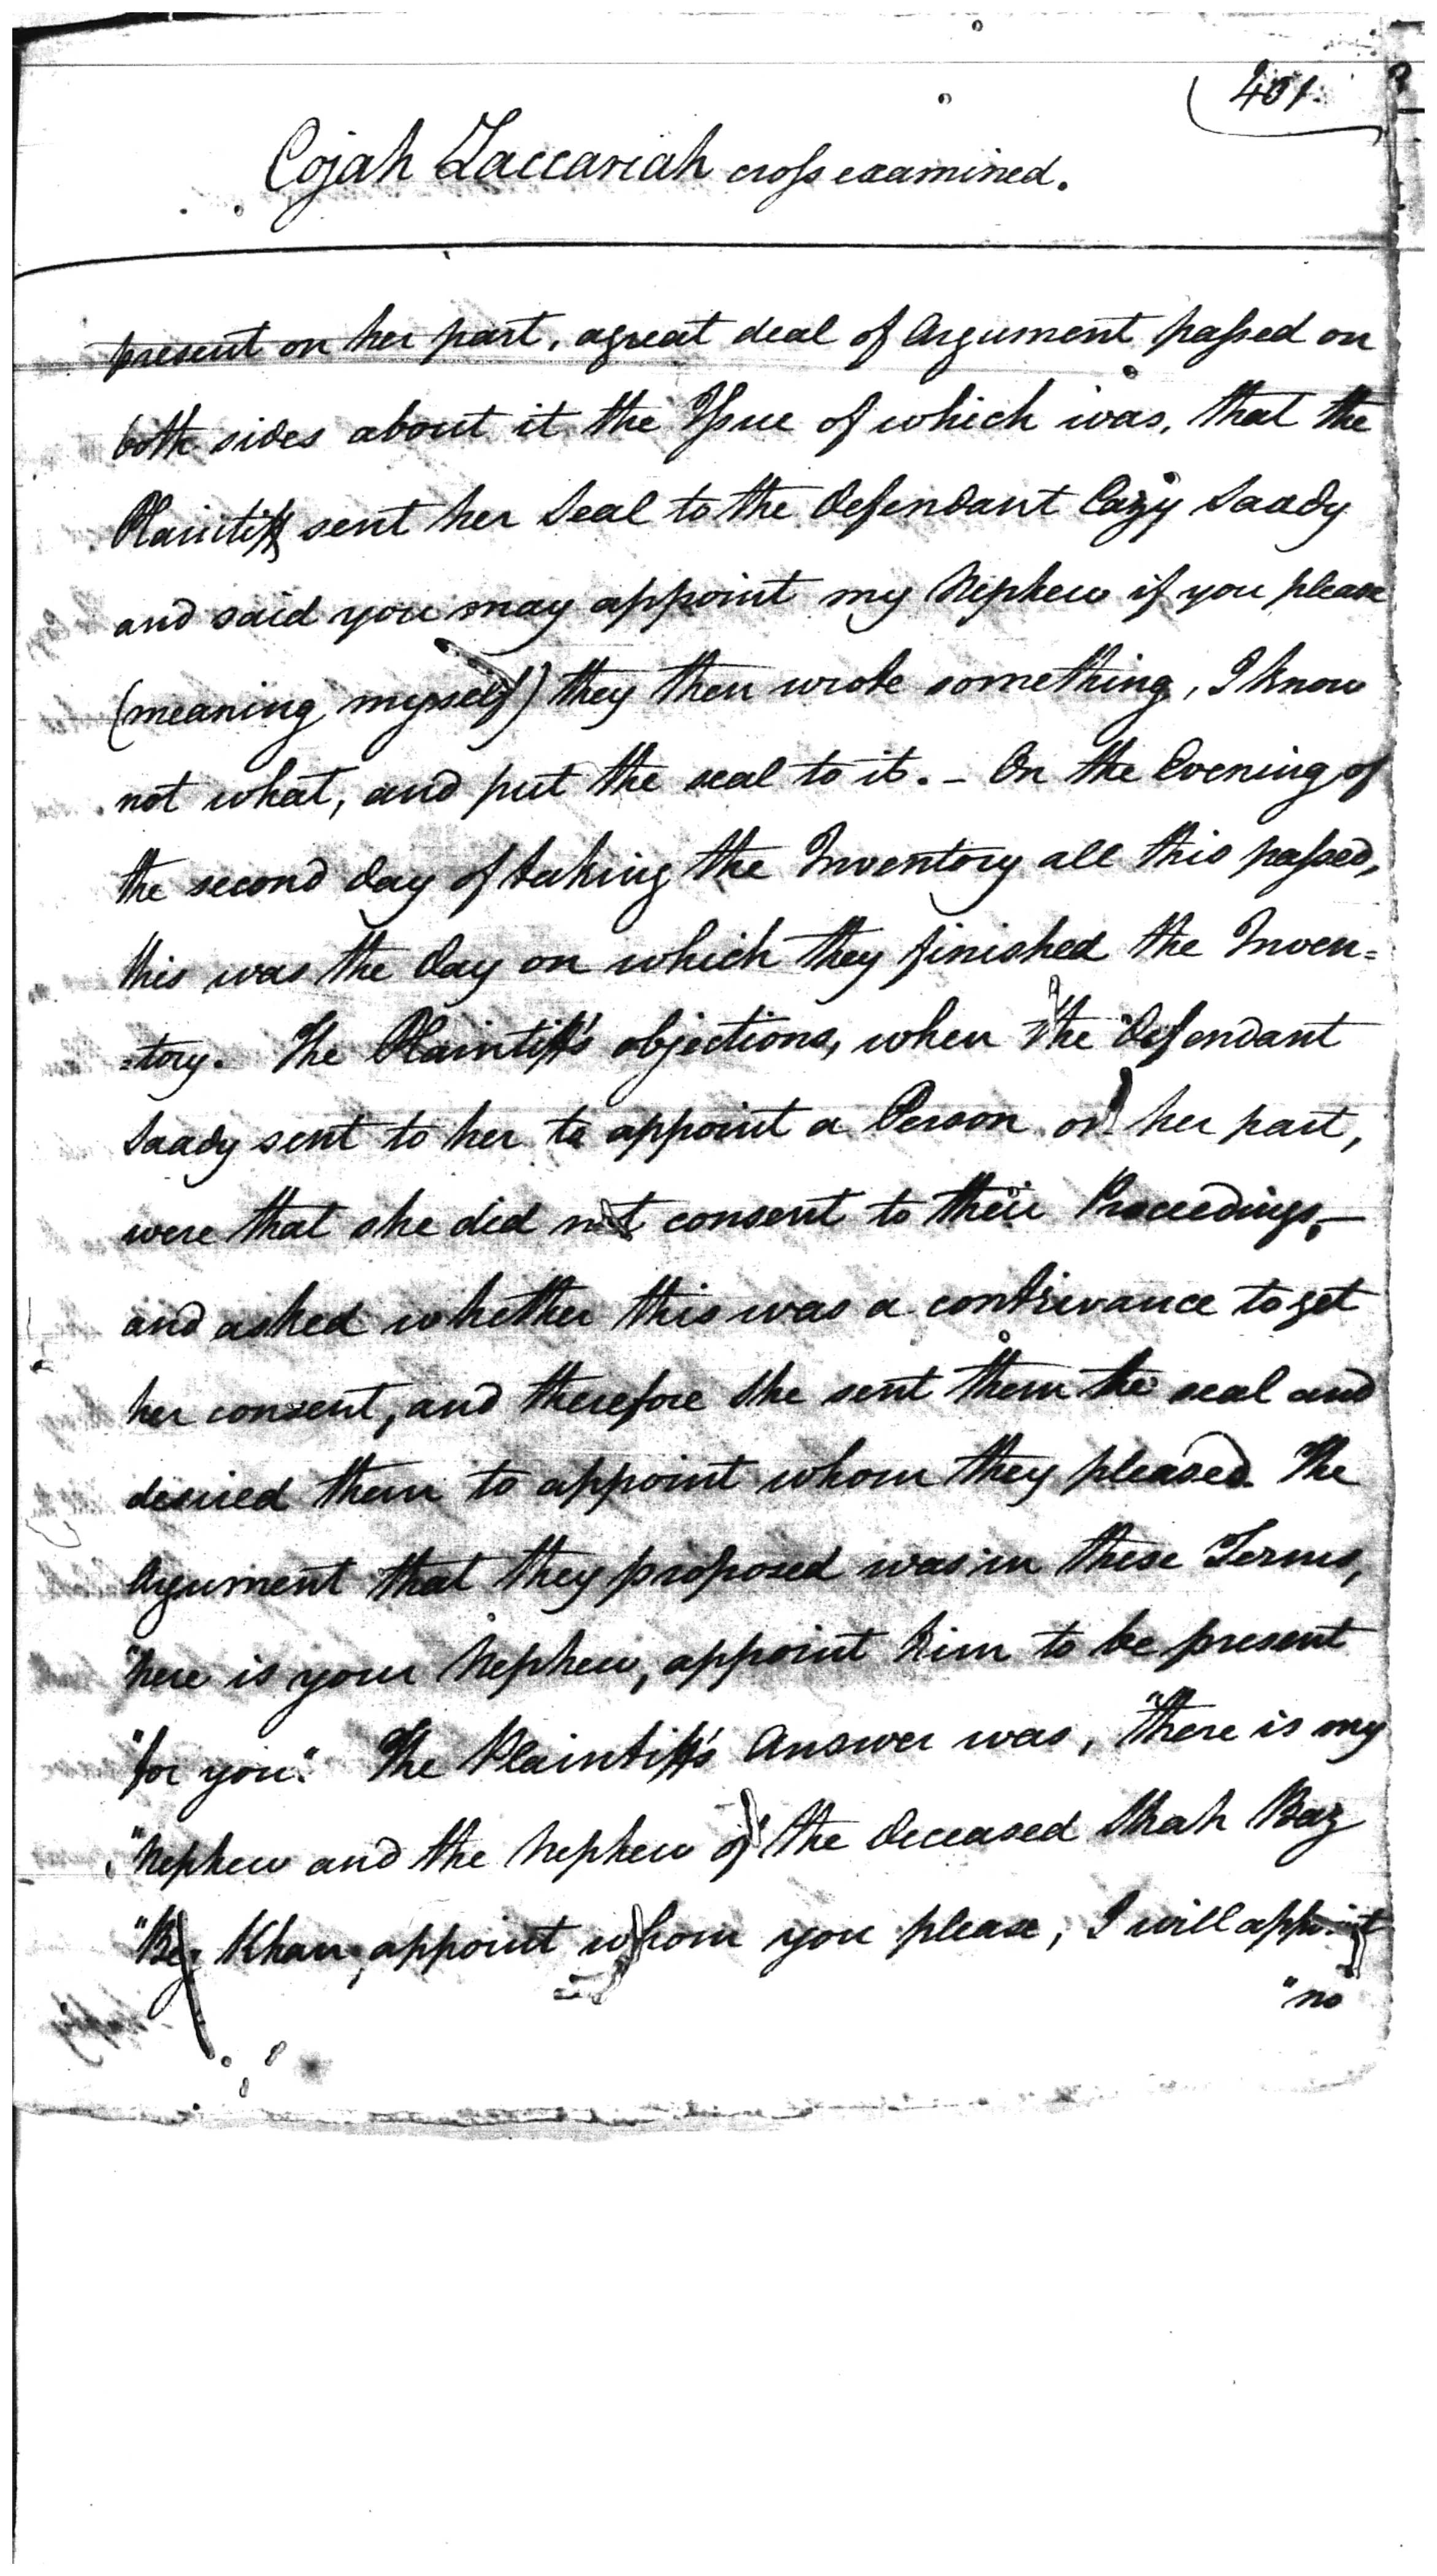 401
Cojah Zaccariah cross examined.
present on her part, a great deal of Argument passed on
both sides about it the Issue of which was, that the
Plaintiff sent her Seal to the defendant Cazy Saady
and said you may appoint my Nephew if you please
(meaning myself) they then wrote something, I know
not what, and put the seal to it. - On the Evening of
the second day of taking the Inventory all this passed,
this was the day on which they finished the Inven=
=tory. The Plaintiff's objections, when the defendant
Saady sent to her to appoint a Person on her part,
were that she did not consent to their Proceedings,—
and asked whether this was a contrivance to get
her consent, and therefore she sent them the seal and
desired them to appoint whom they pleased. The
Argument that they proposed was in these Terms,
"here is your Nephew, appoint him to be present
"for you." The Plaintiff's Answer was, "there is my
"Nephew and the Nephew of the deceased Shah Baz
"Beg Khan, appoint whom you please, I will appoint
"no